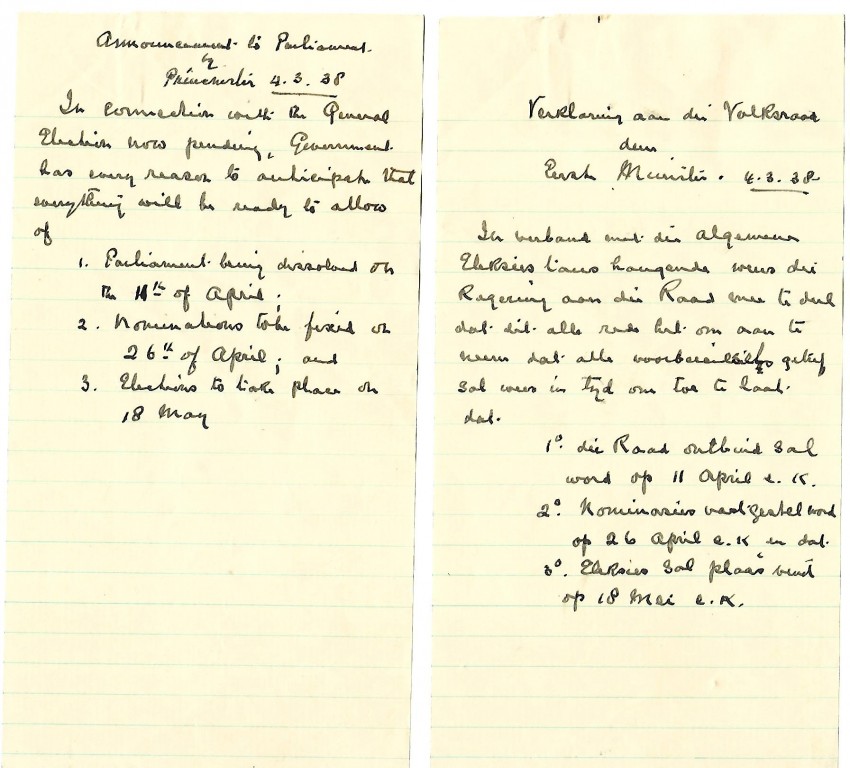 Announcement to Parliament
by
Primeminister 4.3.38
In connection with the General
Election now pending, Government
has every reason to anticipate that
everything will be ready to allow
of
1. Parliament being dissolved on
the 11th of April;
2. Nominations to be fixed on
26th of April; and
3. Elections to take place on
18 May
Verklaring aan die Volksraad
deur
Eerste Minister. 4.3.38
In verband met die algemene
Eleksies tans hangende wens die
Regering aan die Raad mee te deel
dat dit alle rede het om aan te
neem dat alle
sal wees in tyd om toe te laat
dat.
1º. die Raad ontbind sal
word op 11 April e.K.
2º. Nominasies vastgestel word
op 26 April e.K en dat
3º. Eleksies sal plaas vind
op 18 Mei e.K.